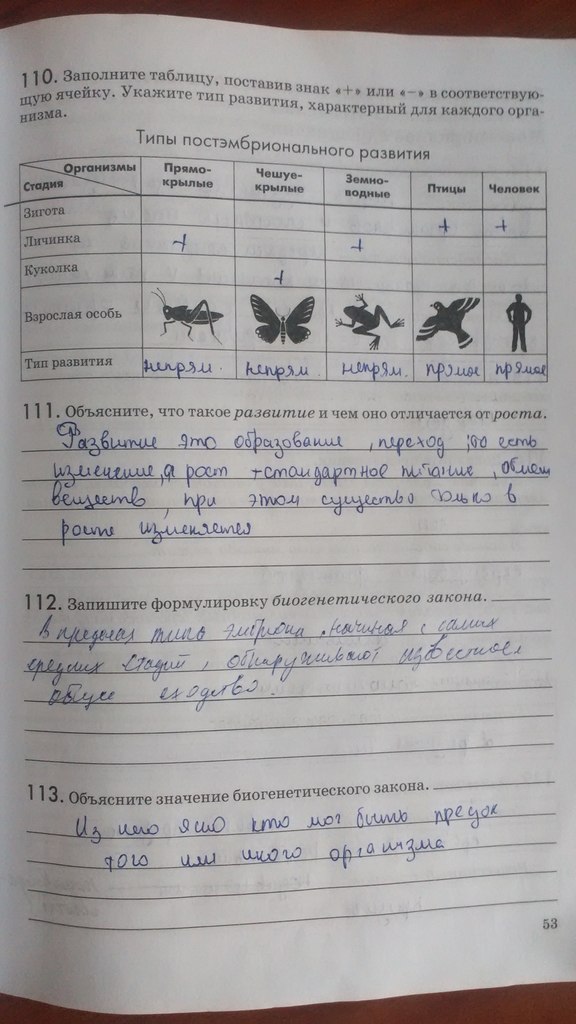 110. Заполните таблицу, поставив знак «+» или «−» в соответствую-
щую ячейку. Укажите тип развития, характерный для каждого орга-
низма.
Типы постэмбрионального развития
Организмы
Стадия
Прямо-
крылые
Чешуе-
крылые
Земно-
водные
Птицы
Человек
Зигота
+ +
Личинка
+ +
Куколка
+
Взрослая особь
Тип развития непрям. непрям. непрям. прямое прямое
111. Объясните, что такое развитие и чем оно отличается от роста.
Развитие это образование, переход, то есть
изменение, а рост стандартное питание, обмен
веществ, при этом существо только в
росте изменяется
112. Запишите формулировку биогенетического закона.
В пределах типа эмбриона, начиная с самых
средних стадий, обнаруживают известное
общее сходство.
113. Объясните значение биогенетического закона.
Из него ясно кто мог быть предок
того или иного организма
53